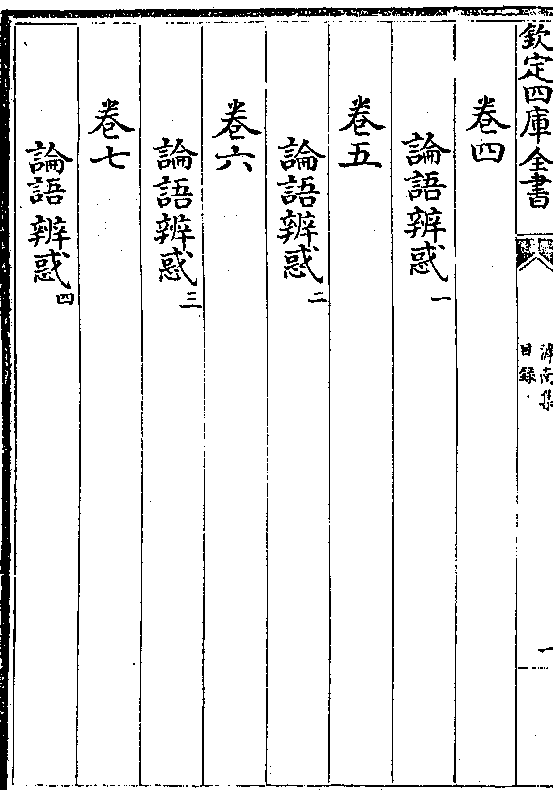 欽定四庫全書
滹南集
目録
一
卷四
論語辨惑一
卷五
論語辨惑二
卷六
論語辨惑三
卷七
論語辨惑四